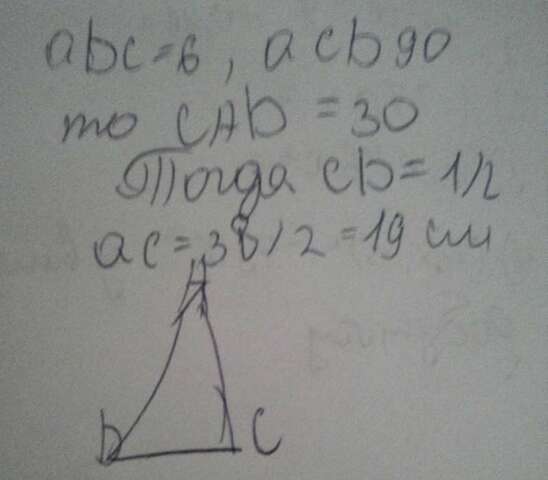 abc=6, acb 90
то CAb = 30
Тогда cb = 1/2
ac = 38/2 = 19 см
A
b C